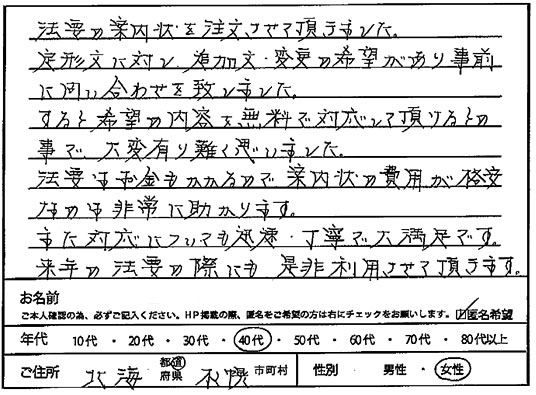 法要の案内状を注文させて頂きました。
定形文に対し、追加文・変更の希望があり事前
に問い合わせを致しました。
すると希望の内容を無料で対応して頂けるとの
事で、大変有り難く思いました。
法要はお金もかかるので案内状の費用が格安
なのは非常に助かります。
また対応についても迅速・丁寧で大満足です。
来年の法要の際にも是非利用させて頂きます。
お名前
ご本人確認の為、必ずご記入ください。HP掲載の際、匿名をご希望の方は右にチェックをお願いします。☑匿名希望
年代 10代 ・ 20代 ・ 30代 ・ 40代 ・ 50代 ・ 60代 ・ 70代 ・ 80代以上
ご住所 北海 都道府県 札幌 市町村 性別 男性 ・ 女性